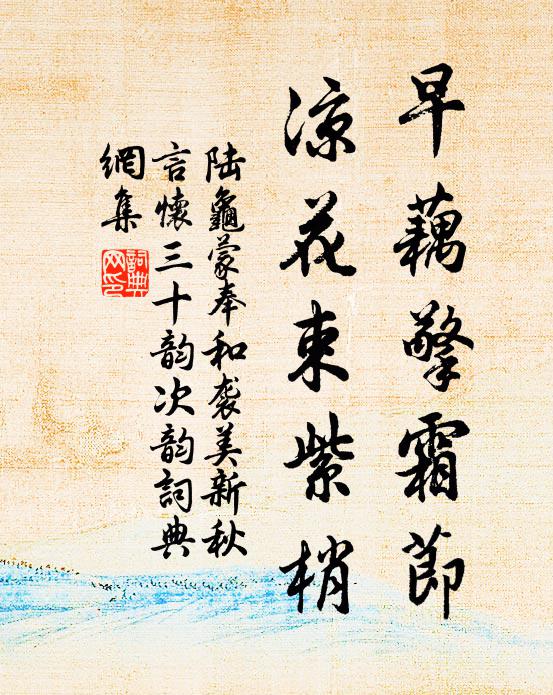 早藕擎霜節
凉花束紫梢
陆龜蒙奉和袭美新秋
言懷三十韵次韵詞典
網集
詞典
网印